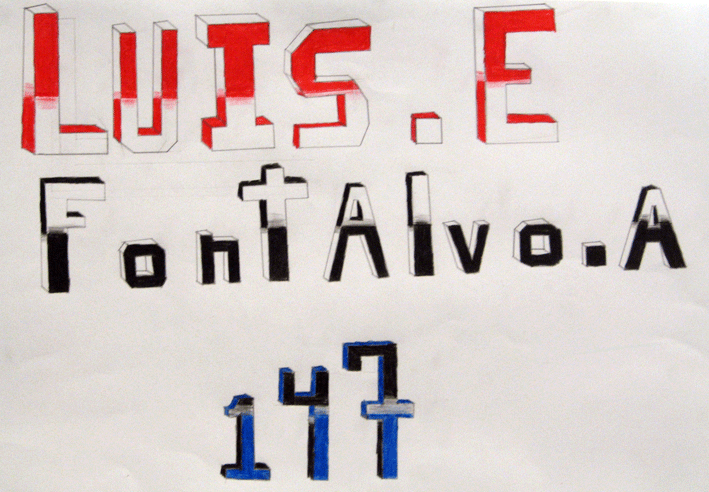 LUIS.E
FontAlvo.A
147